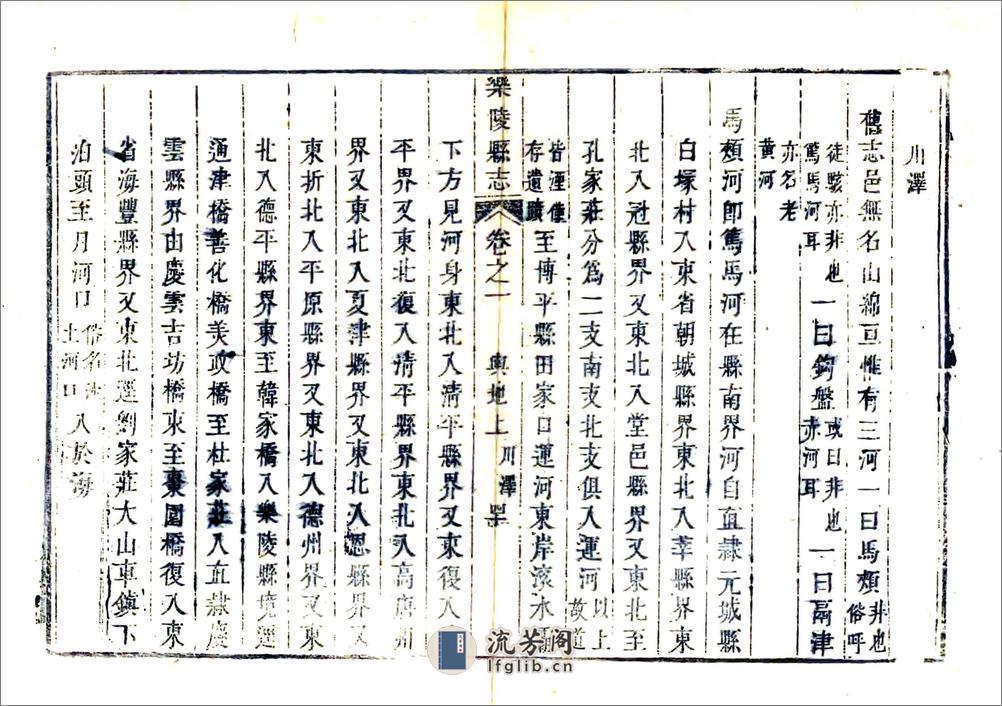 川澤
舊志邑無名山綿亘惟有三河一曰馬頰非也俗呼
徒駭亦非也篤馬河耳一曰鉤盤或曰非也赤河耳一曰鬲津
亦名老黃河
馬頰河即篤馬河在縣南界河自直隸元城縣
白塚村入東省朝城縣界東北入莘縣界東
北入冠縣界又東北入堂邑縣界又東北至
孔家莊分爲二支南支北支俱入運河以上故道
皆湮僅存遺蹟至博平縣田家口運河東岸滾水
樂陵縣志 卷之一 輿地上 川澤
下方見河身東北入清平縣界又東復入
平界又東北復入清平縣界東北入高唐州
界又東北入夏津縣界東北入恩縣界又
東折北入平原縣界又東北入德州界又東
北入德平縣界東至韓家橋入樂陵縣境逕
通津橋善化橋美政橋至杜家莊入直隸慶
雲縣界由慶雲古坊橋東至棗園橋復入東
省海豐縣界又東北逕劉家莊大山車鎮下
泊頭至月河口俗名土河口入於海
流芳阁
lfglib.cn